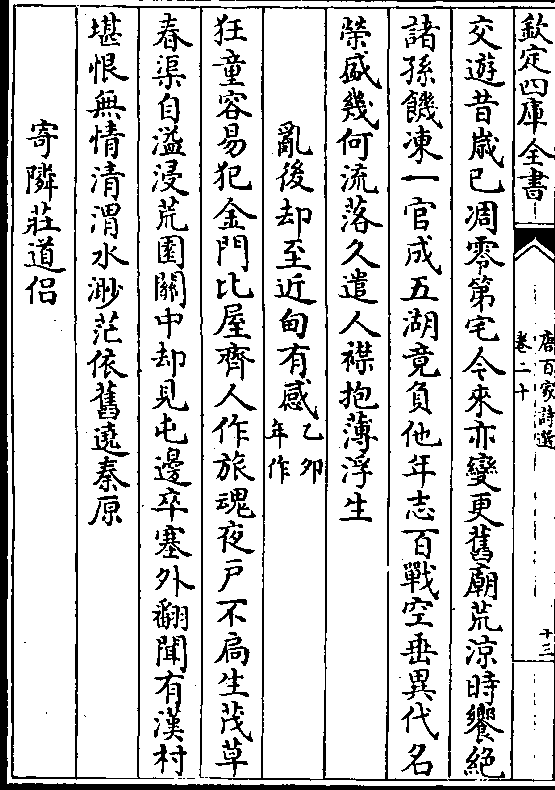 欽定四庫全書
唐百家詩選
卷二十
十三
交遊昔歲已凋零第宅今來亦變更舊廟荒涼時饗絶
諸孫饑凍一官成五湖竟負他年志百戰空垂異代名
榮盛幾何流落久遣人襟抱薄浮生
亂後却至近甸有感乙卯年作
狂童容易犯金門比屋齊人作旅魂夜戶不扃生茂草
春渠自溢浸荒園關中却見屯邊卒塞外翻聞有漢村
堪恨無情清渭水渺茫依舊遶秦原
寄隣莊道侶